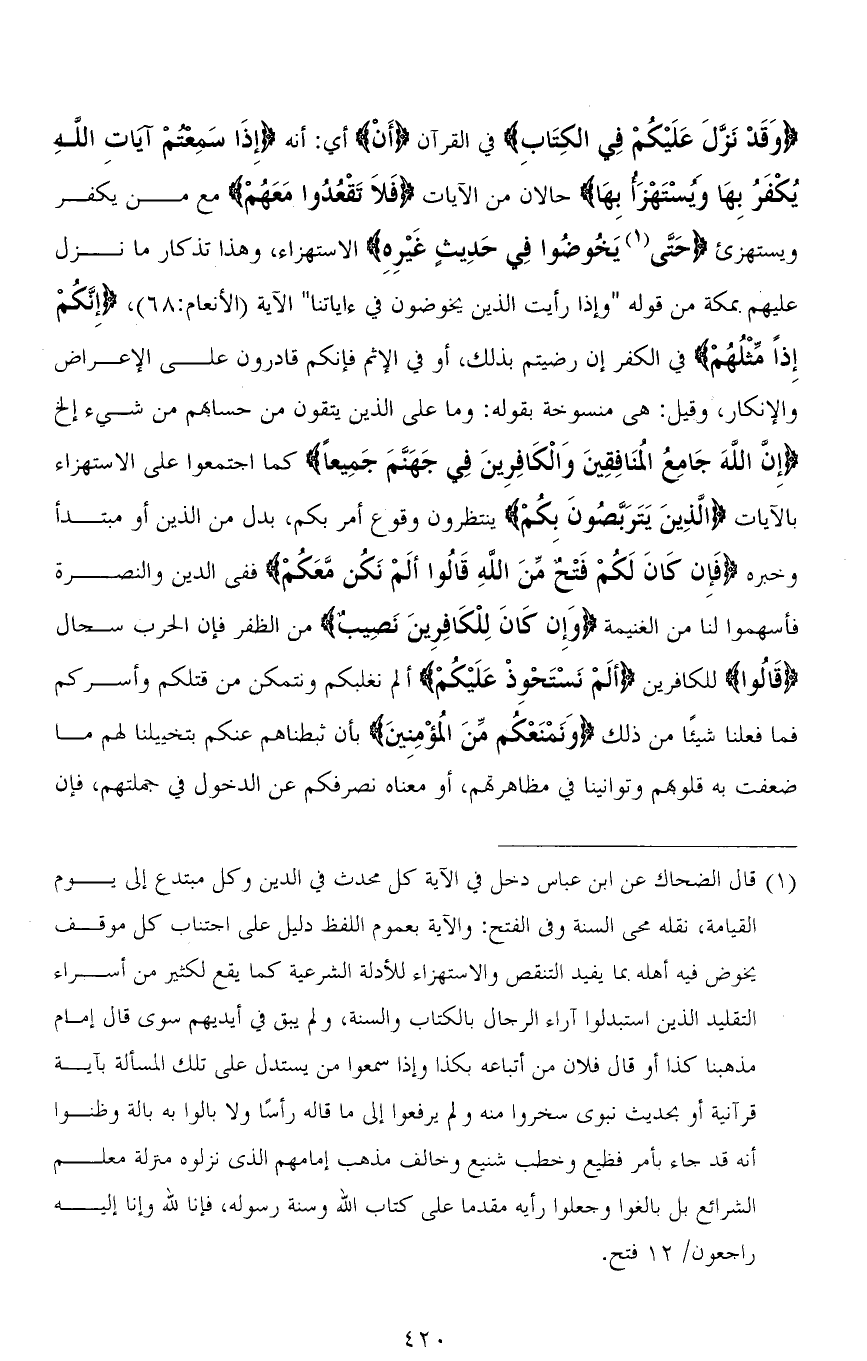 ﴿وَقَدْ نَزَّلَ عَلَيْكُمْ فِي الكِتَابِ﴾ في القرآن ﴿أَنْ﴾ أي: أنه ﴿إِذَا سَمِعْتُمْ آيَاتِ اللَّهِ
يُكْفَرُ بِهَا وَيُسْتَهْزَأُ بِهَا﴾ حالان من الآيات ﴿فَلاَ تَقْعُدُوا مَعَهُمْ﴾ مع من يكفر
ويستهزئ ﴿حَتَّى(١) يَخُوضُوا فِي حَدِيثٍ غَيْرِهِ﴾ الاستهزاء، وهذا تذكار ما نزل
عليهم بمكة من قوله "وإذا رأيت الذين يخوضون في ءاياتنا" الآية (الأنعام:٦٨)، ﴿إِنَّكُمْ
إِذاً مِّثْلُهُمْ﴾ في الكفر إن رضيتم بذلك، أو في الإثم فإنكم قادرون على الإعراض
والإنكار، وقيل: هى منسوخة بقوله: وما على الذين يتقون من حسابهم من شيء إلخ
﴿إِنَّ اللَّهَ جَامِعُ المُنَافِقِينَ وَالْكَافِرِينَ فِي جَهَنَّمَ جَمِيعاً﴾ كما اجتمعوا على الاستهزاء
بالآيات ﴿الَّذِينَ يَتَرَبَّصُونَ بِكُمْ﴾ ينتظرون وقوع أمر بكم، بدل من الذين أو مبتدأ
وخبره ﴿فَإِن كَانَ لَكُمْ فَتْحٌ مِّنَ اللَّهِ قَالُوا أَلَمْ نَكُن مَّعَكُمْ﴾ ففى الدين والنصرة
فأسهموا لنا من الغنيمة ﴿وَإِن كَانَ لِلْكَافِرِينَ نَصِيبٌ﴾ من الظفر فإن الحرب سجال
﴿قَالُوا﴾ للكافرين ﴿أَلَمْ نَسْتَحْوِذْ عَلَيْكُمْ﴾ ألم نغلبكم ونتمكن من قتلكم وأسركم
فما فعلنا شيئًا من ذلك ﴿وَنَمْنَعْكُم مِّنَ المُؤْمِنِينَ﴾ بأن ثبطناهم عنكم بتخييلنا لهم ما
ضعفت به قلوبهم وتوانينا في مظاهرتهم، أو معناه نصرفكم عن الدخول في جملتهم، فإن
(١) قال الضحاك عن ابن عباس دخل في الآية كل محدث في الدين وكل مبتدع إلى يوم
القيامة، نقله محى السنة وفى الفتح: والآية بعموم اللفظ دليل على اجتناب كل موقف
يخوض فيه أهله بما يفيد التنقص والاستهزاء للأدلة الشرعية كما يقع لكثير من أسراء
التقليد الذين استبدلوا آراء الرجال بالكتاب والسنة، ولم يبق في أيديهم سوى قال إمام
مذهبنا كذا أو قال فلان من أتباعه بكذا وإذا سمعوا من يستدل على تلك المسألة بآية
قرآنية أو بحديث نبوى سخروا منه ولم يرفعوا إلى ما قاله رأسًا ولا بالوا به بالة وظنوا
أنه قد جاء بأمر فظيع وخطب شنيع وخالف مذهب إمامهم الذى نزلوه منزلة معلم
الشرائع بل بالغوا وجعلوا رأيه مقدما على كتاب الله وسنة رسوله، فإنا لله وإنا إليه
راجعون/ ١٢ فتح.
٤٢٠